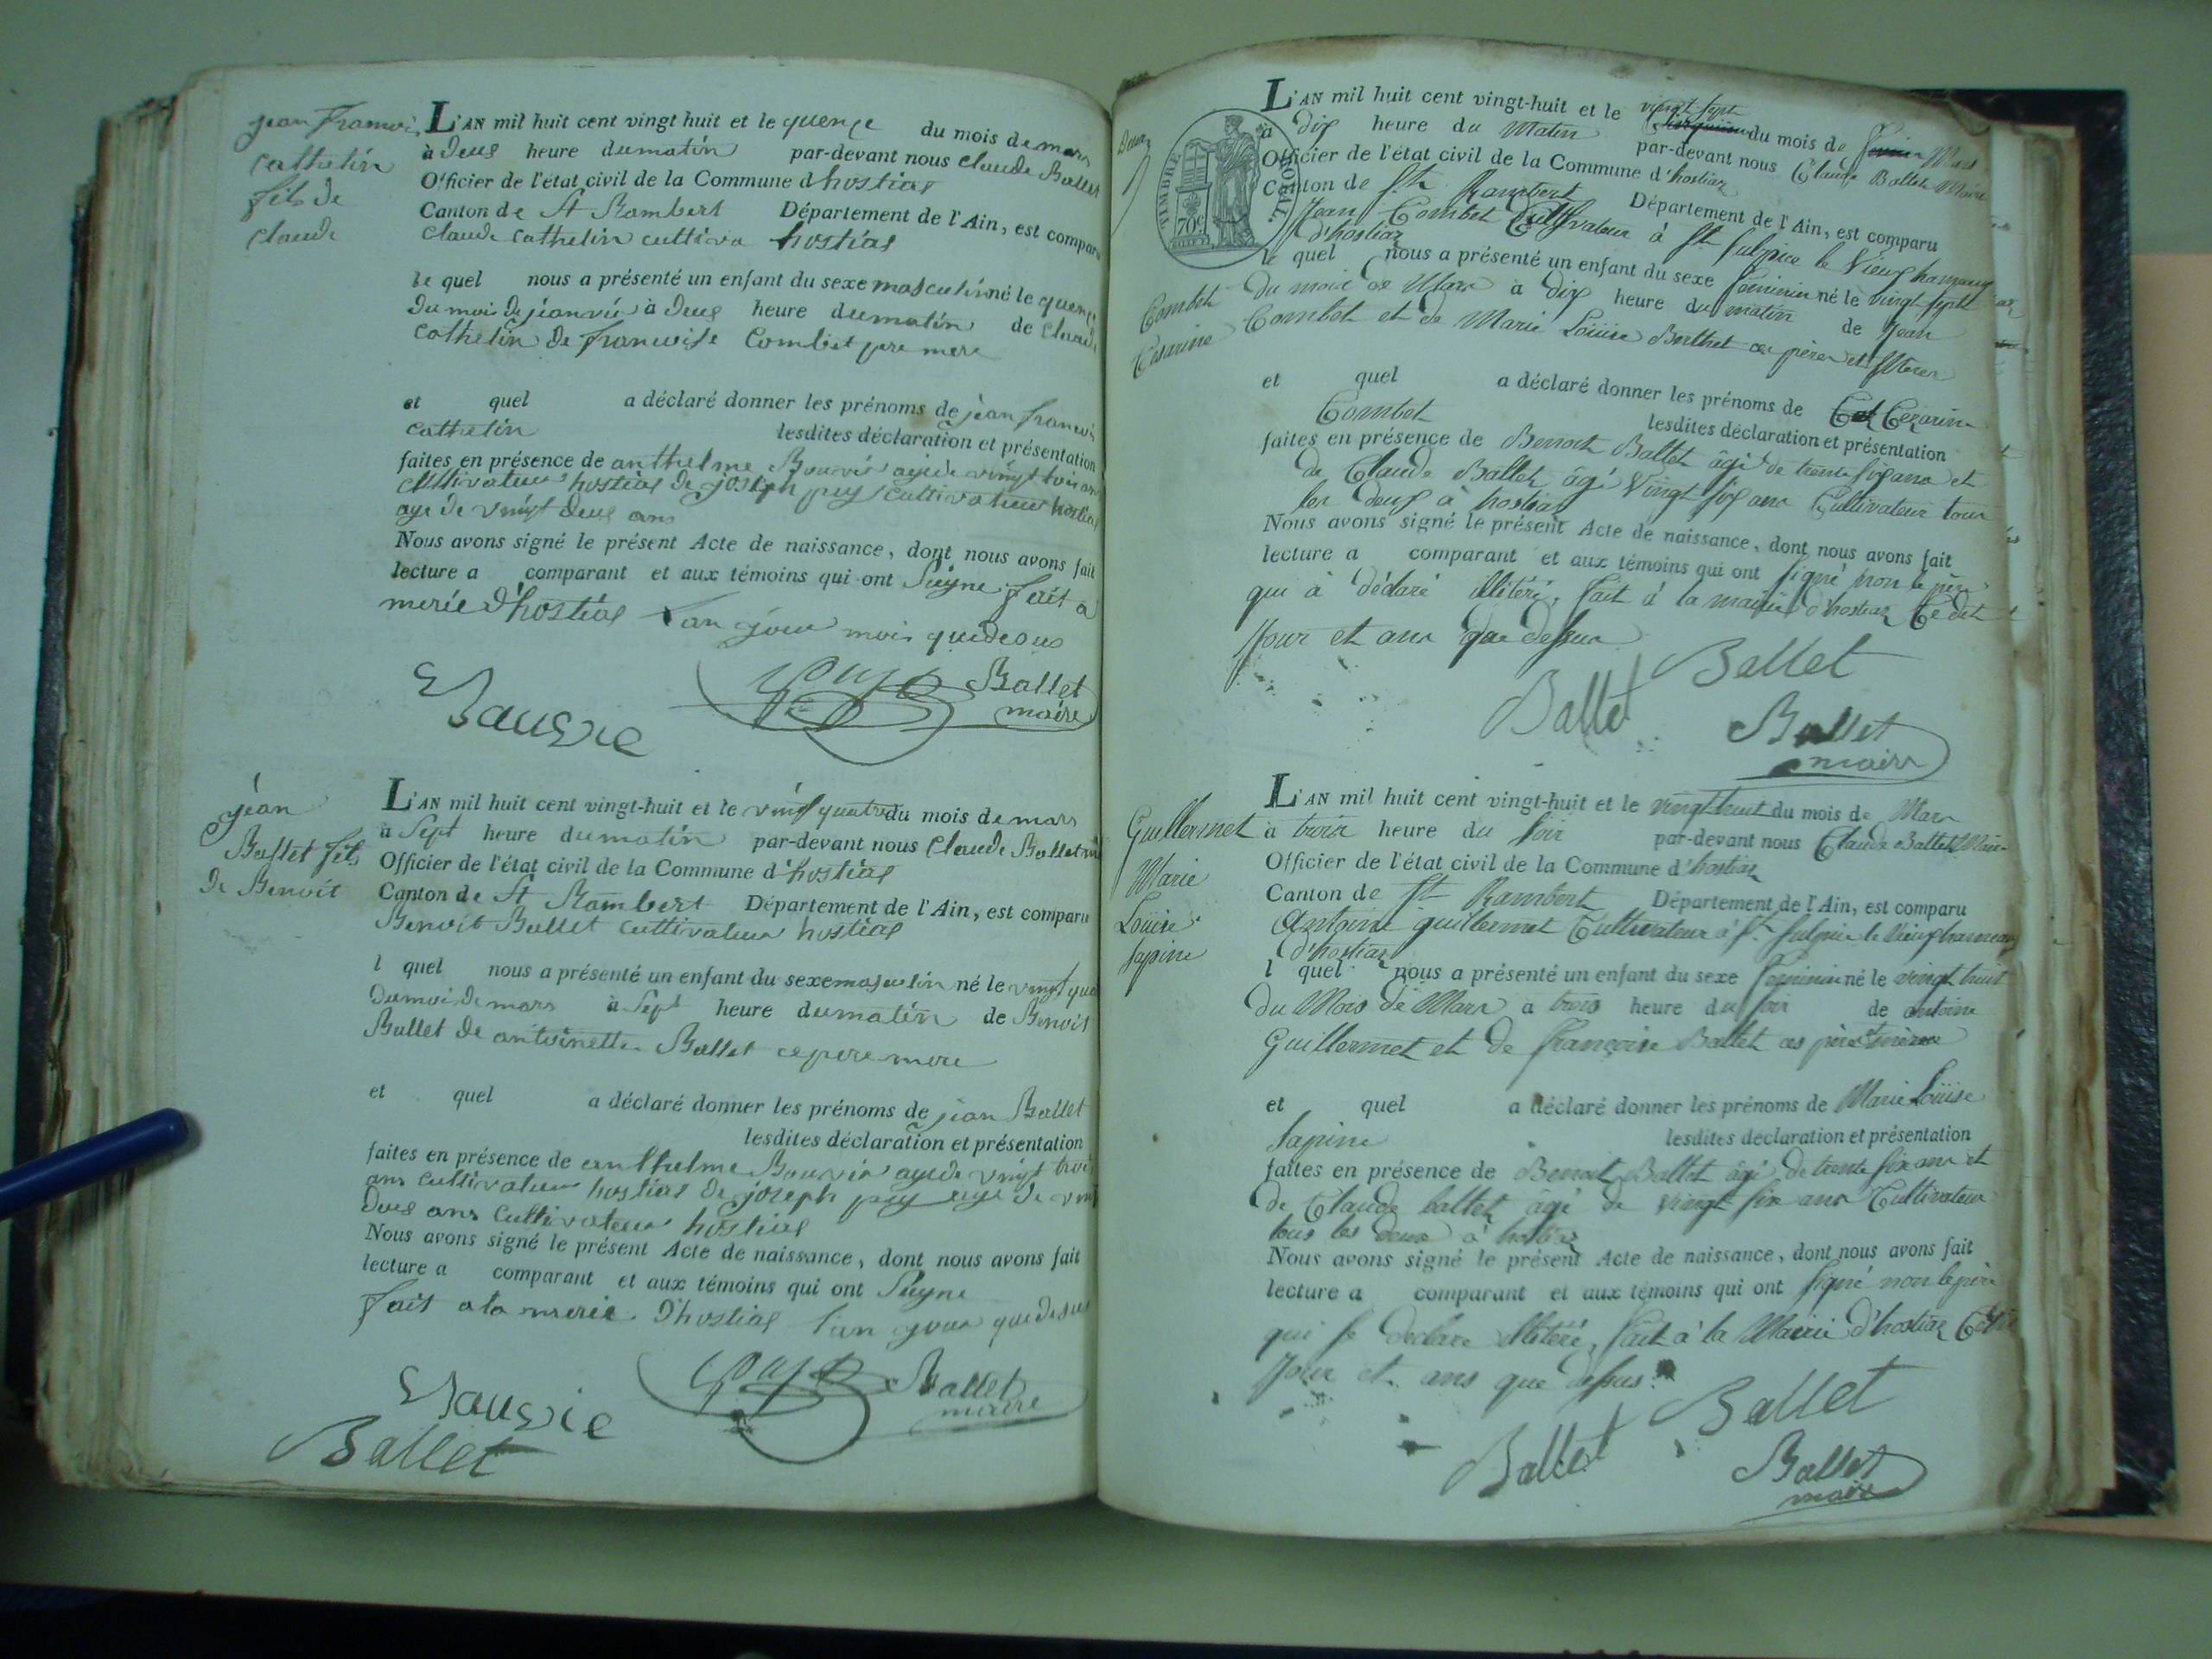 jean francois
cathelin
fils de
claude
L'AN mil huit cent vingt huit et le quenze du mois de mars
à deus heure du matin par-devant nous claude Ballet
Officier de l'état civil de la Commune d'hostias
Canton de St Rambert Département de l'Ain, est comparu
claude cathelin cultiva hostias
le quel nous a présenté un enfant du sexe masculin né le quenze
du mois de jéanvié à deus heure du matin de claude
cathelin de francoise Combet pere mere
et quel a déclaré donner les prénoms de jéan francois
cathelin lesdites déclaration et présentation
faites en présence de anthelme Bouvié age de vingt trois ans
cultivateur hostias de joseph puy cultivateur hostias
age de vingt deus ans
Nous avons signé le présent Acte de naissance, dont nous avons fait
lecture a comparant et aux témoins qui ont Signe fait a
merie d'hostias l'an jour mois que desus
Ballet
maire
jéan
Ballet fils
de Benoit
L'AN mil huit cent vingt-huit et le vingt quatre du mois de mars
à Sept heure du matin par-devant nous Claude Ballet
Officier de l'état civil de la Commune d'hostias
Canton de St Rambert Département de l'Ain, est comparu
Benoit Ballet cultivateur hostias
l quel nous a présenté un enfant du sexe masculin né le vingt qua
du mois de mars à Sept heure du matin de Benoit
Ballet de antoinette Ballet ce pere mere
et quel a déclaré donner les prénoms de jéan Ballet
lesdites déclaration et présentation
faites en présence de anthelme Bouvié age de vingt trois
ans cultivateur hostias de joseph puy age de vingt
deus ans cultivateur hostias
Nous avons signé le présent Acte de naissance, dont nous avons fait
lecture a comparant et aux témoins qui ont Signe
fait a la merie d'hostias l'an jour que desus
Ballet
maire
Ballet
TIMBRE ROYAL.
70c
L'AN mil huit cent vingt-huit et le vingt sept du mois de Mars
à dix heure du Matin par-devant nous Claude Ballet Maire
Officier de l'état civil de la Commune d'hostiaz
Canton de St Rambert Département de l'Ain, est comparu
Jean Combet Cultivateur à St Sulpice le Vieux hameau
d'hostiaz
le quel nous a présenté un enfant du sexe feminin né le vingt sept
du mois de Mars à dix heure du matin de Jean
Combet et de Marie Louise Berthet ces pères et Mères
Combet
Cesarine
et quel a déclaré donner les prénoms de Cezarine
Combet lesdites déclaration et présentation
faites en présence de Benoit Ballet âgé de trente six ans et
de Claude Ballet âgé vingt six ans Cultivateur tous
les deux à hostiaz
Nous avons signé le présent Acte de naissance, dont nous avons fait
lecture a comparant et aux témoins qui ont signé non le père
qui à déclaré illitéré, fait à la mairie d'hostiaz Ce dit
Jour et ans que dessus
Ballet
Ballet
Ballet
maire
Guillermet
Marie
Louise
Sapine
L'AN mil huit cent vingt-huit et le vingt huit du mois de Mars
à trois heure du soir par-devant nous Claude Ballet Maire
Officier de l'état civil de la Commune d'hostiaz
Canton de St Rambert Département de l'Ain, est comparu
Antoine guillermet Cultivateur à St Sulpice le Vieux hameau
d'hostiaz
l quel nous a présenté un enfant du sexe feminin né le vingt huit
du Mois de Mars à trois heure du soir de antoine
Guillermet et de françoise Ballet ces père et mère
et quel a déclaré donner les prénoms de Marie Louise
Sapine lesdites déclaration et présentation
faites en présence de Benoit Ballet âgé de trente six ans et
de Claude ballet âgé de vingt six ans Cultivateur
tous les deux à hostiaz
Nous avons signé le présent Acte de naissance, dont nous avons fait
lecture a comparant et aux témoins qui ont signé non le père
qui se declare illitéré, fait à la Mairie d'hostiaz
Jour et ans que dessus
Ballet
Ballet
Ballet
maire